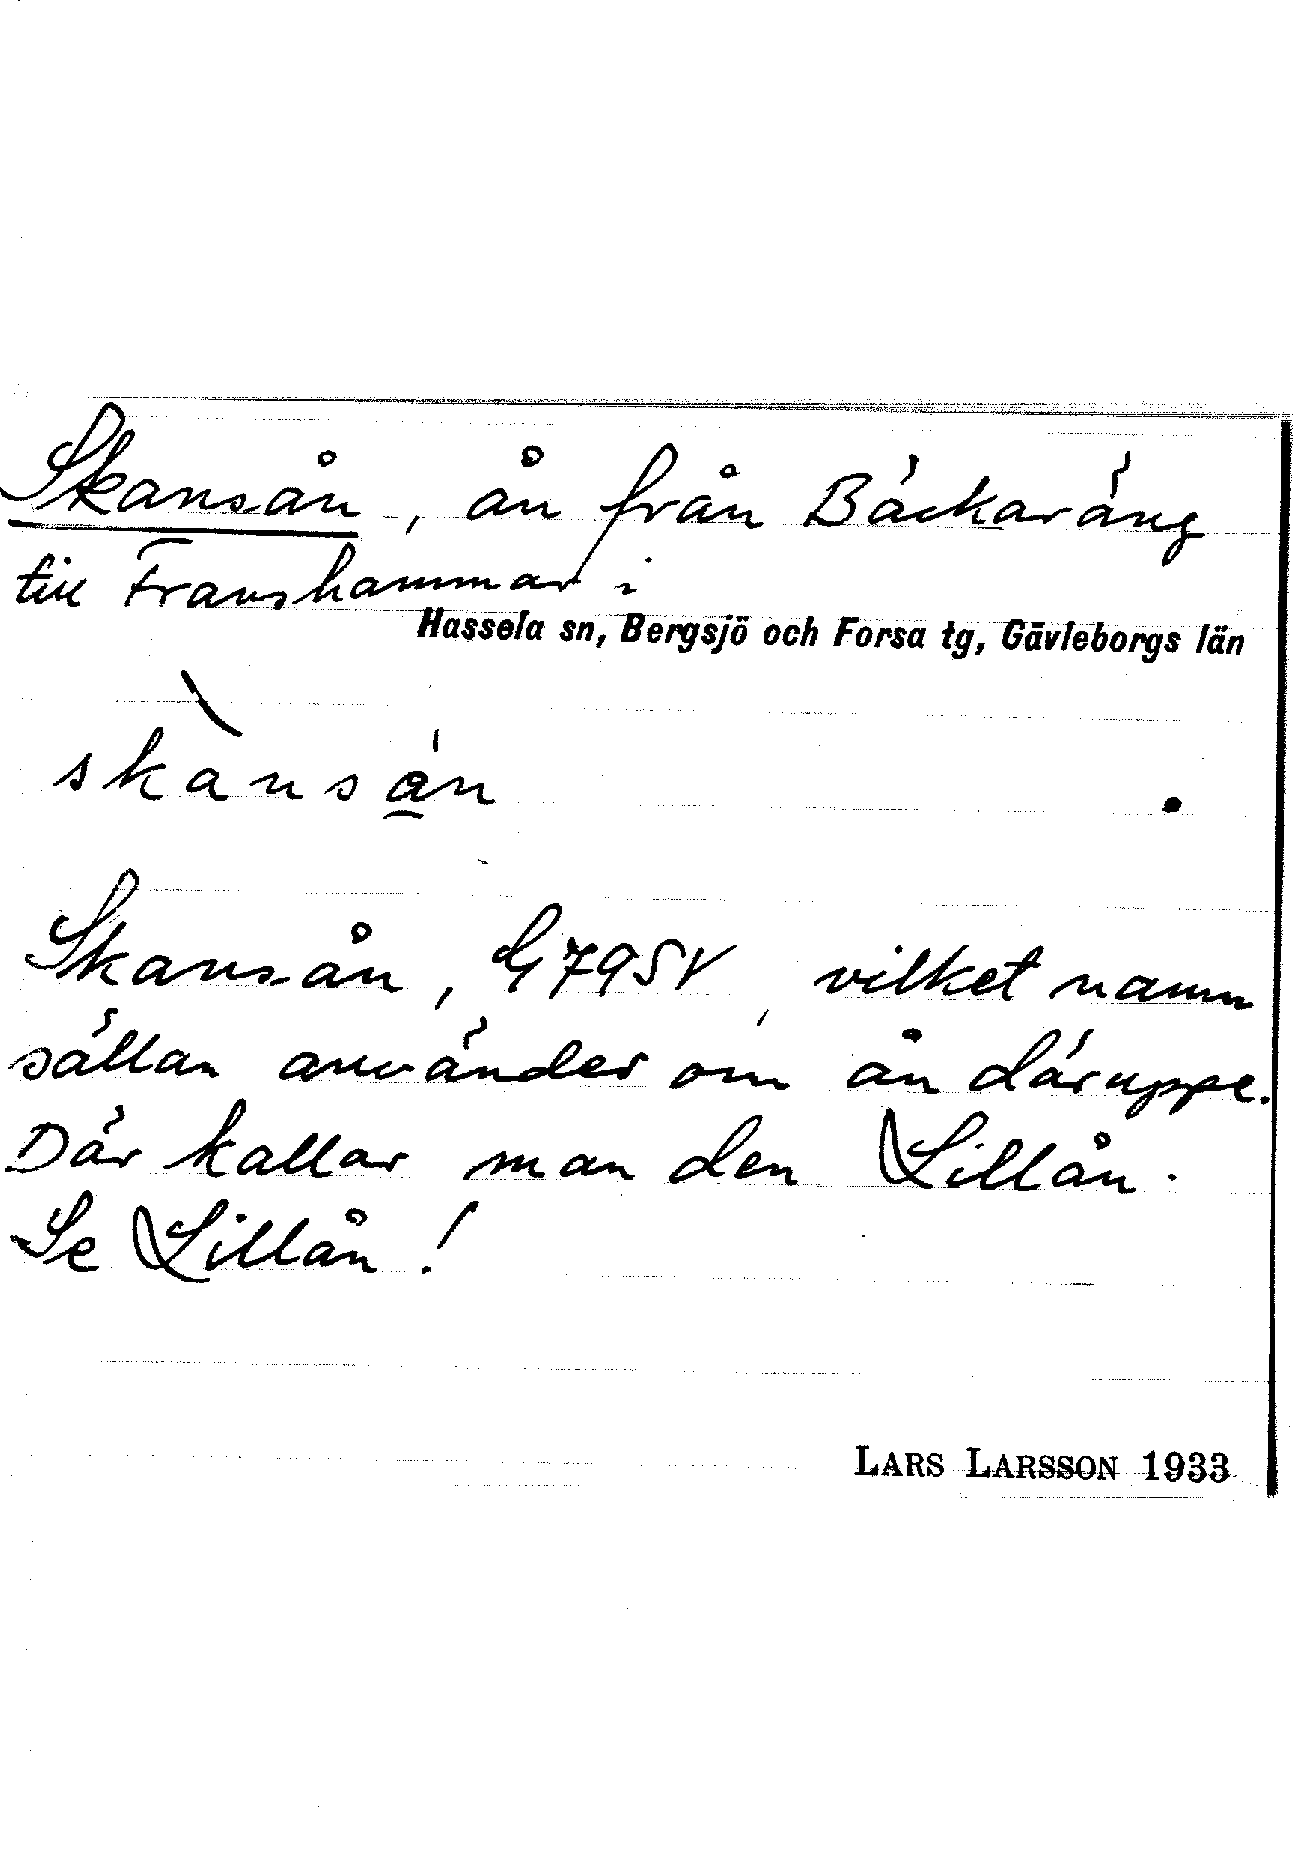 Skansån, ån från Bäckaräng
till Franshammar i
Hassela sn, Bergsjö och Forsa tg, Gävleborgs län
skànsa̲n
Skansån, G79SV, vilket namn
sällan använder om ån däruppe.
Där kallar man den Lillån.
Se Lillån!
LARS LARSSON 1933